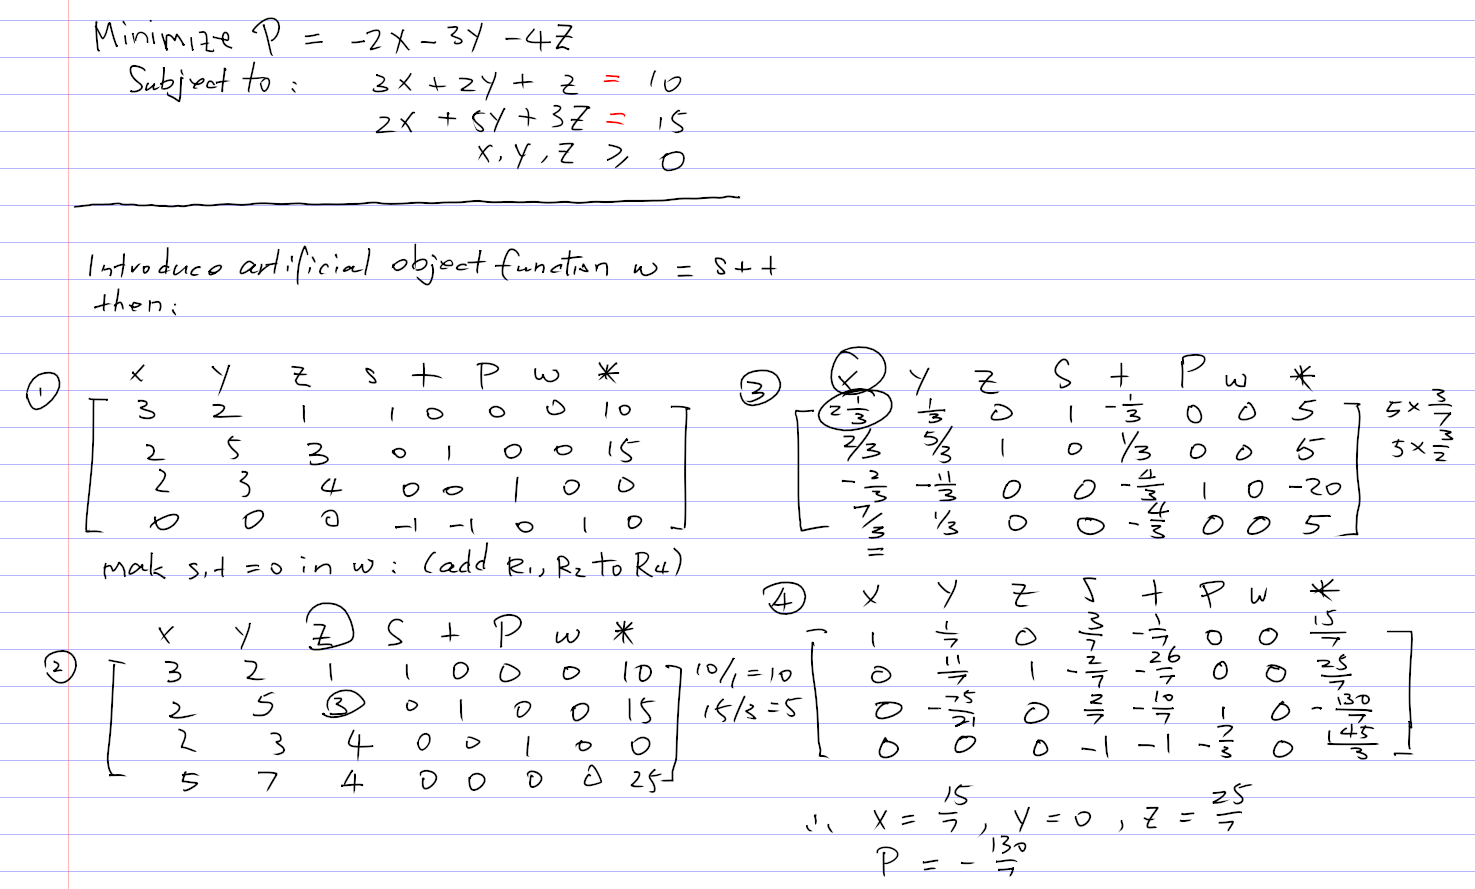 Minimize P = -2x - 3y - 4z
Subject to: 3x + 2y + z = 10
2x + 5y + 3z = 15
x, y, z ≥ 0
Introduce artificial object function w = s + t
then:
① x y z s t P w *
3 2 1 1 0 0 0 10
2 5 3 0 1 0 0 15
2 3 4 0 0 1 0 0
0 0 0 -1 -1 0 1 0
mak s,t = 0 in w: (add R1, R2 to R4)
② x y z s t P w *
3 2 1 1 0 0 0 10 10/1 = 10
2 5 3 0 1 0 0 15 15/3 = 5
2 3 4 0 0 1 0 0
5 7 4 0 0 0 0 25
③ x y z s t P w *
2 1/3 1/3 0 1 -1/3 0 0 5 5 × 3/7
2/3 5/3 1 0 1/3 0 0 5 5 × 3/2
-2/3 -11/3 0 0 -4/3 1 0 -20
7/3 1/3 0 0 -4/3 0 0 5
=
④ x y z s t P w *
1 1/7 0 3/7 -1/7 0 0 15/7
0 11/7 1 -2/7 -26/7 0 0 25/7
0 -75/21 0 2/7 -10/7 1 0 -130/7
0 0 0 -1 -1 -7/3 0 145/3
∴ x = 15/7, y = 0, z = 25/7
P = -130/7